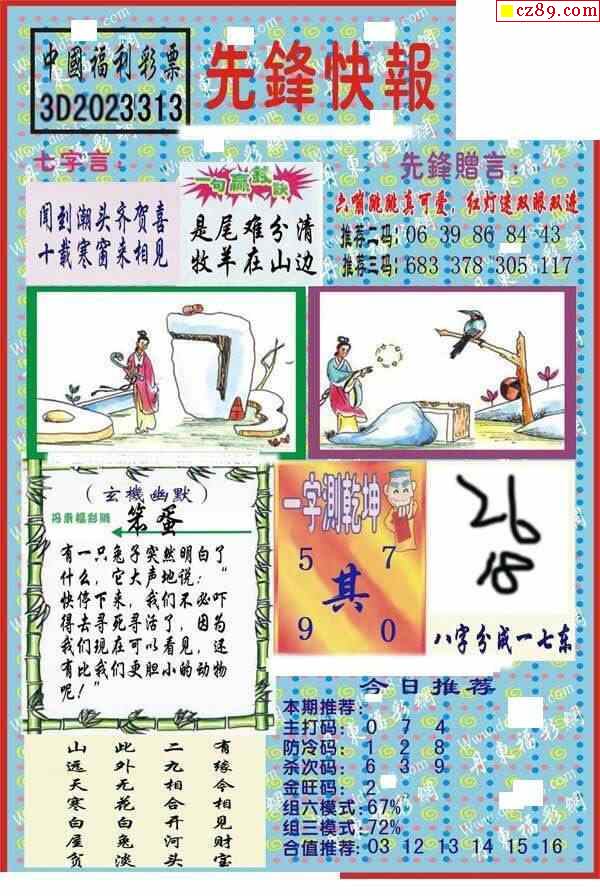 cz89.com
中國福利彩票
3D2023313
先鋒快報
七字言：
闻到潮头齐贺喜
十载寒窗来相见
是尾难分清
牧羊在山边
先鋒贈言：
六嘣跳跳真可爱，红灯速双眼双进
推荐二码：06 39 86 84 43
推荐三码：683 378 305 117
（玄機幽默）
笨蛋
有一只兔子突然明白了
什么，它大声地说：“
快停下来，我们不必吓
得去寻死寻活了，因为
我们现在可以看见，还
有比我们更胆小的动物
呢！”
一字測乾坤
5 7
其
9 0
26
18
八字分成一七东
今日推荐
本期推荐：
主打码：0 7 4
防冷码：1 2 8
杀次码：6 3 9
金旺码：2
组六模式：67%
组三模式：72%
合值推荐：03 12 13 14 15 16
有缘今相见财宝
二九相合开河头
此外无花白兔淡
山远天寒白屋贫